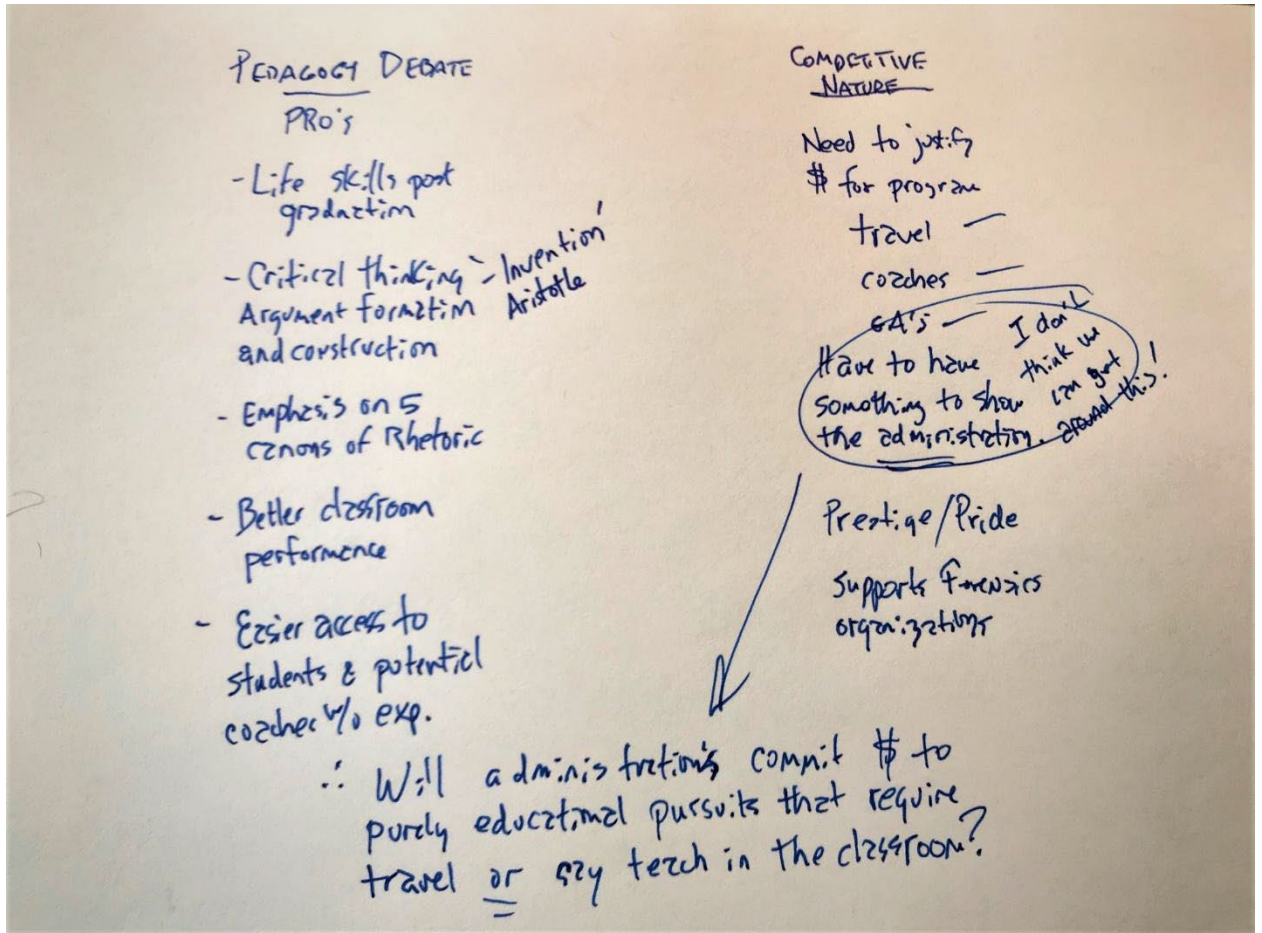 PEDAGOGY DEBATE
PRO's
- Life skills post
graduation
- Critical thinking - Invention
Argument formation Aristotle
and construction
- Emphasis on 5
canons of Rhetoric
- Better classroom
performance
- Easier access to
students & potential
coaches w/o exp.
COMPETITIVE
NATURE
Need to justify
$ for program
travel —
coaches —
GA's —
Have to have
something to show
the administration.
I don't
think we
can get
around this!
Prestige/Pride
Supports Forensics
organizations
∴ Will administration's commit $ to
purely educational pursuits that require
travel or say teach in the classroom?